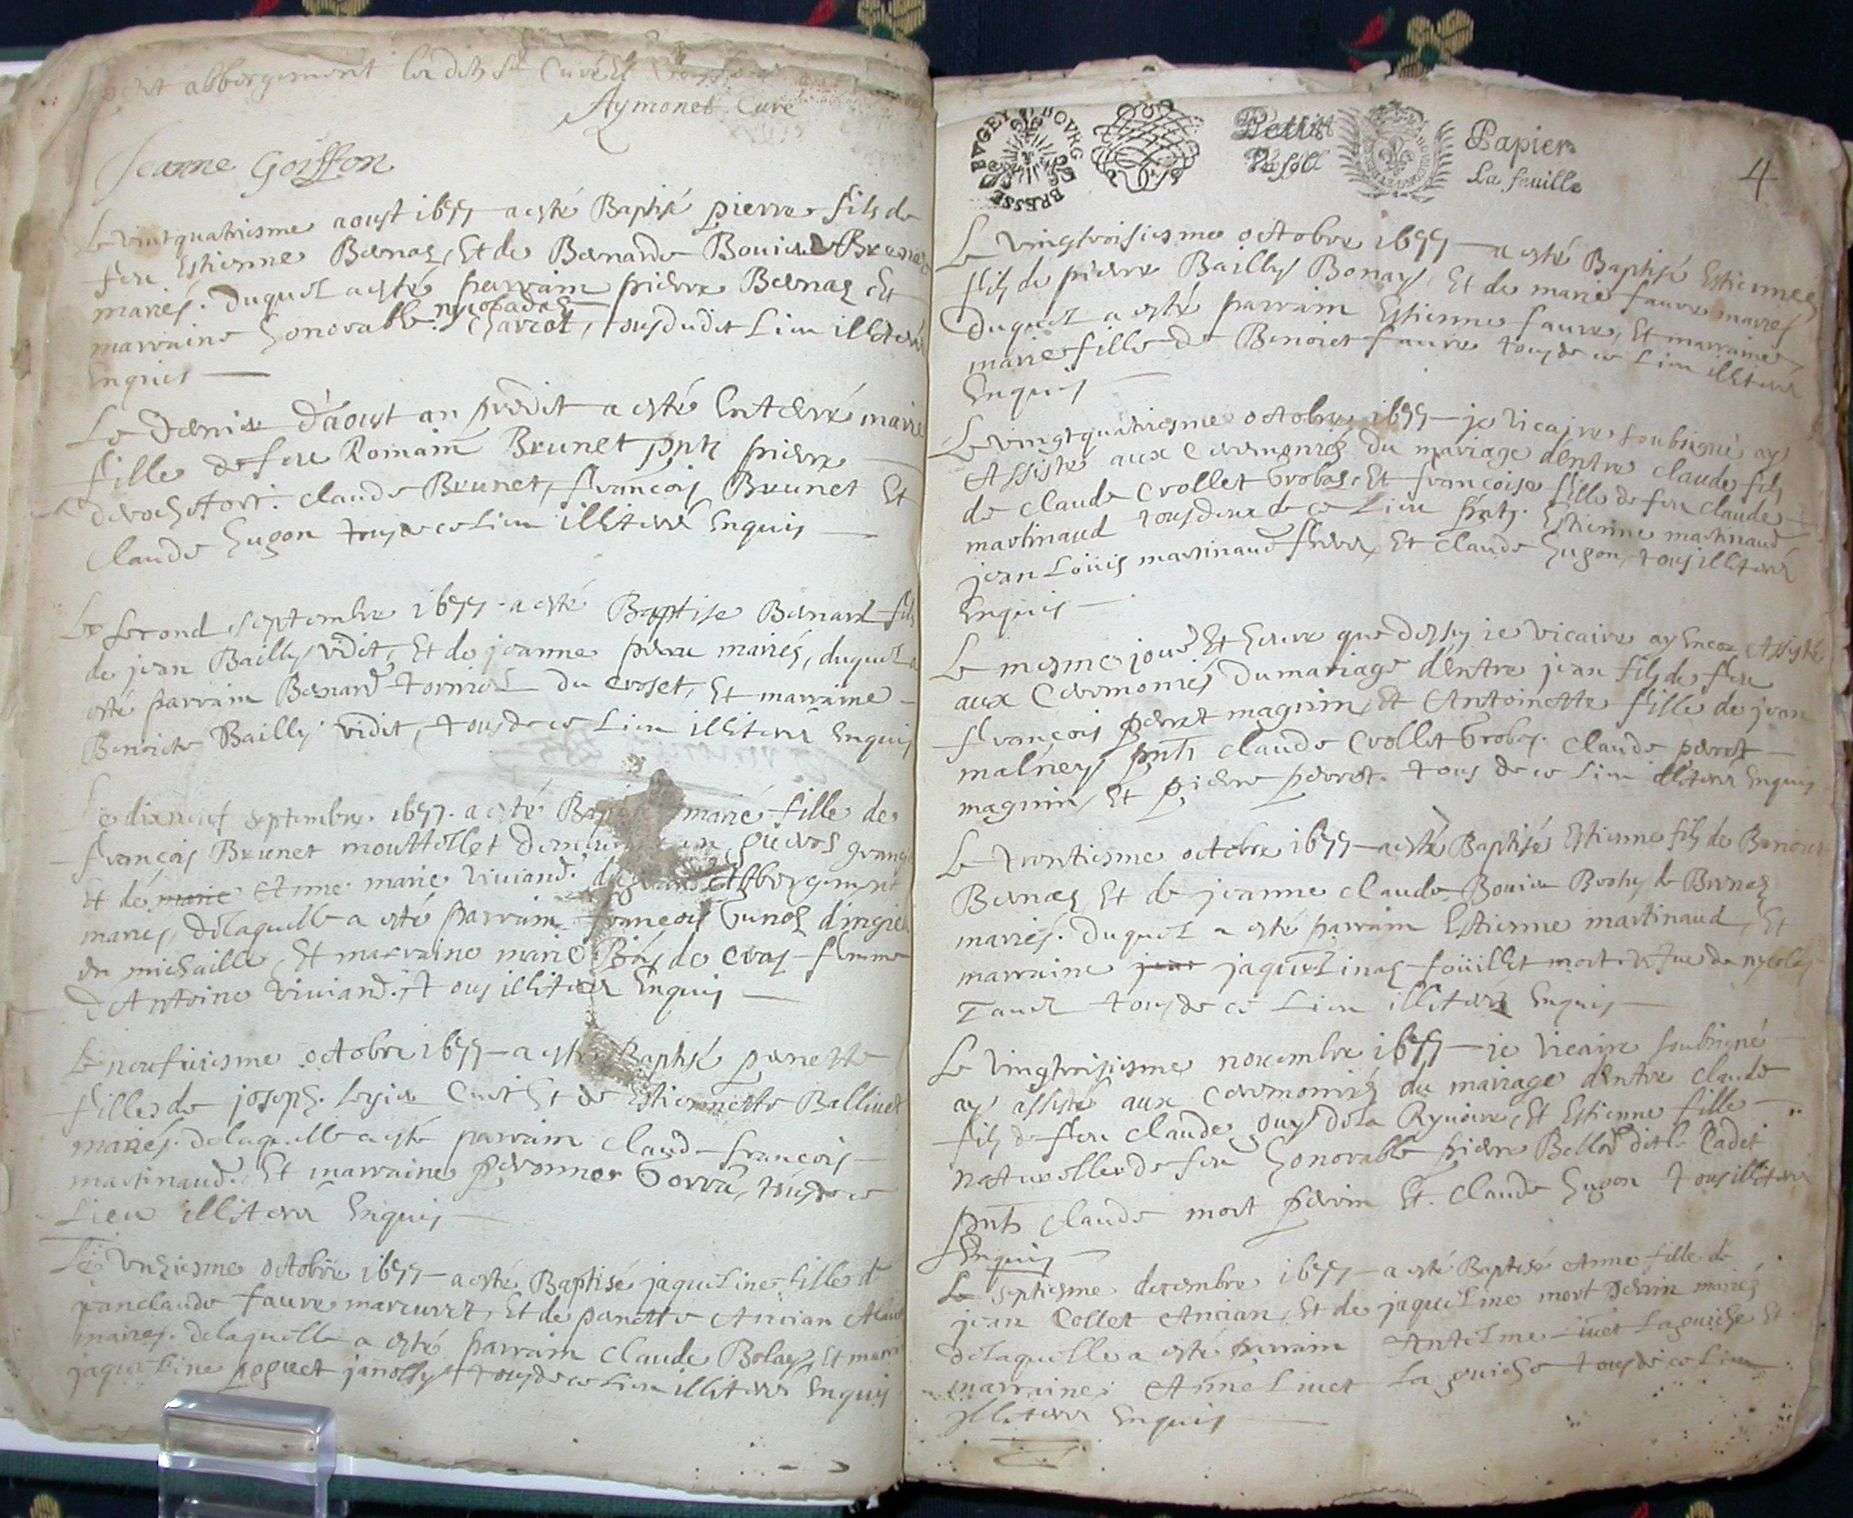 abbergement les dits Sr Curé et
Aymonet Curé
Jeanne Goiffon
Le vintquatriesme aoust 1677 a esté Baptisé pierre fils de
feu Estienne Bernaz, Et de Bernarde Bouier
mariés. Duquel a esté parrain pierre Bernaz Et
marraine honorable nycolade Charcot, tous dudit Lieu illiteré
Enquis
Le dernier d'aoust an predit a esté Enterré marie
fille de feu Romain Brunet pnts pierre
derochefort. Claude Brunet, françois Brunet Et
Claude hugon tous de ce Lieu illiteré Enquis
Le second septembre 1677 a esté Baptise Bernard fils
de jean Bailly vidit, Et de jeanne perra mariés, duquel a
esté parrain Bernard tornier du croset, Et marraine
Benoite Bailly vidit, tous de ce Lieu illiteré Enquis
Le dixneuf septembre 1677 a esté marie fille de
françois Brunet mouttellet
Et de marie Anne marie viviand Abbergement
mariés, delaquelle a esté parrain françois
en michaille, Et marraine marie de cras femme
d'Antoine viviand. Tous illiteré Enquis
Le neufviesme octobre 1677 a esté Baptisé penette
fille de joseph Et de Estiennette Ballivet
mariés. delaquelle a esté parrain claude françois
martinaud. Et marraine peronne tous de ce
Lieu illiteré Enquis
Le unziesme octobre 1677 a esté Baptisé jaqueline fille de
jeanclaude faure Et de panette Ancian
mariés. delaquelle a esté parrain Claude Et marr
jaqueline poguet tous de ce Lieu illiteré Enquis
BVGEY BOVRG BRESSE
Papier
La feuille
4
Le vingtroisiesme octobre 1677 a esté Baptisé Estienne
fils de pierre Bailly Bonay, Et de marie faure mariés
Duquel a esté parrain Estienne faure, Et marraine
marie fille de Benoict faure tous de ce Lieu illiteré
Enquis
Le vingtquatriesme octobre 1677 je vicaire soubsigné ay
Assisté aux Ceremonies du mariage d'entre claude fils
de claude Crollet Grobas, Et françoise fille de feu claude
martinaud tous deux de ce Lieu pnts. Estienne martinaud
jean Loüis martinaud frere, Et claude hugon, tous illiteré
Enquis
Le mesme jour Et heure que dessus je vicaire ay Encor Assisté
aux Ceremonies du mariage d'entre jean fils de feu
françois perret magnin, Et Antoinette fille de jean
malney pnts claude Crollet Grobas. Claude perret
magnin, Et pierre perret. tous de ce Lieu illiteré Enquis
Le trentiesme octobre 1677 a esté Baptisé Estienne fils de Benoict
Bernaz Et de jeanne claude Bouier
mariés. Duquel a esté parrain Estienne martinaud, Et
marraine jaqueline foüillet de nycolas
Tavel tous de ce Lieu illiteré Enquis
Le vingtroisiesme novembre 1677 je vicaire soubsigné
ay assisté aux Ceremonies du mariage d'entre Claude
fils de feu claude guy dela Ryvoire, Et Estienne fille
naturelle de feu honorable pierre Bellod dit le Cadet
pnts claude mort perrin Et. Claude hugon tous illiteré
Enquis
Le septiesme decembre 1677 a esté Baptisé Anne fille de
jean Collet Ancian, Et de jaqueline mort perrin mariés
delaquelle a esté parrain Antelme Livet Laguiche Et
marraine Anne Livet Laguiche tous de ce Lieu
illiteré Enquis